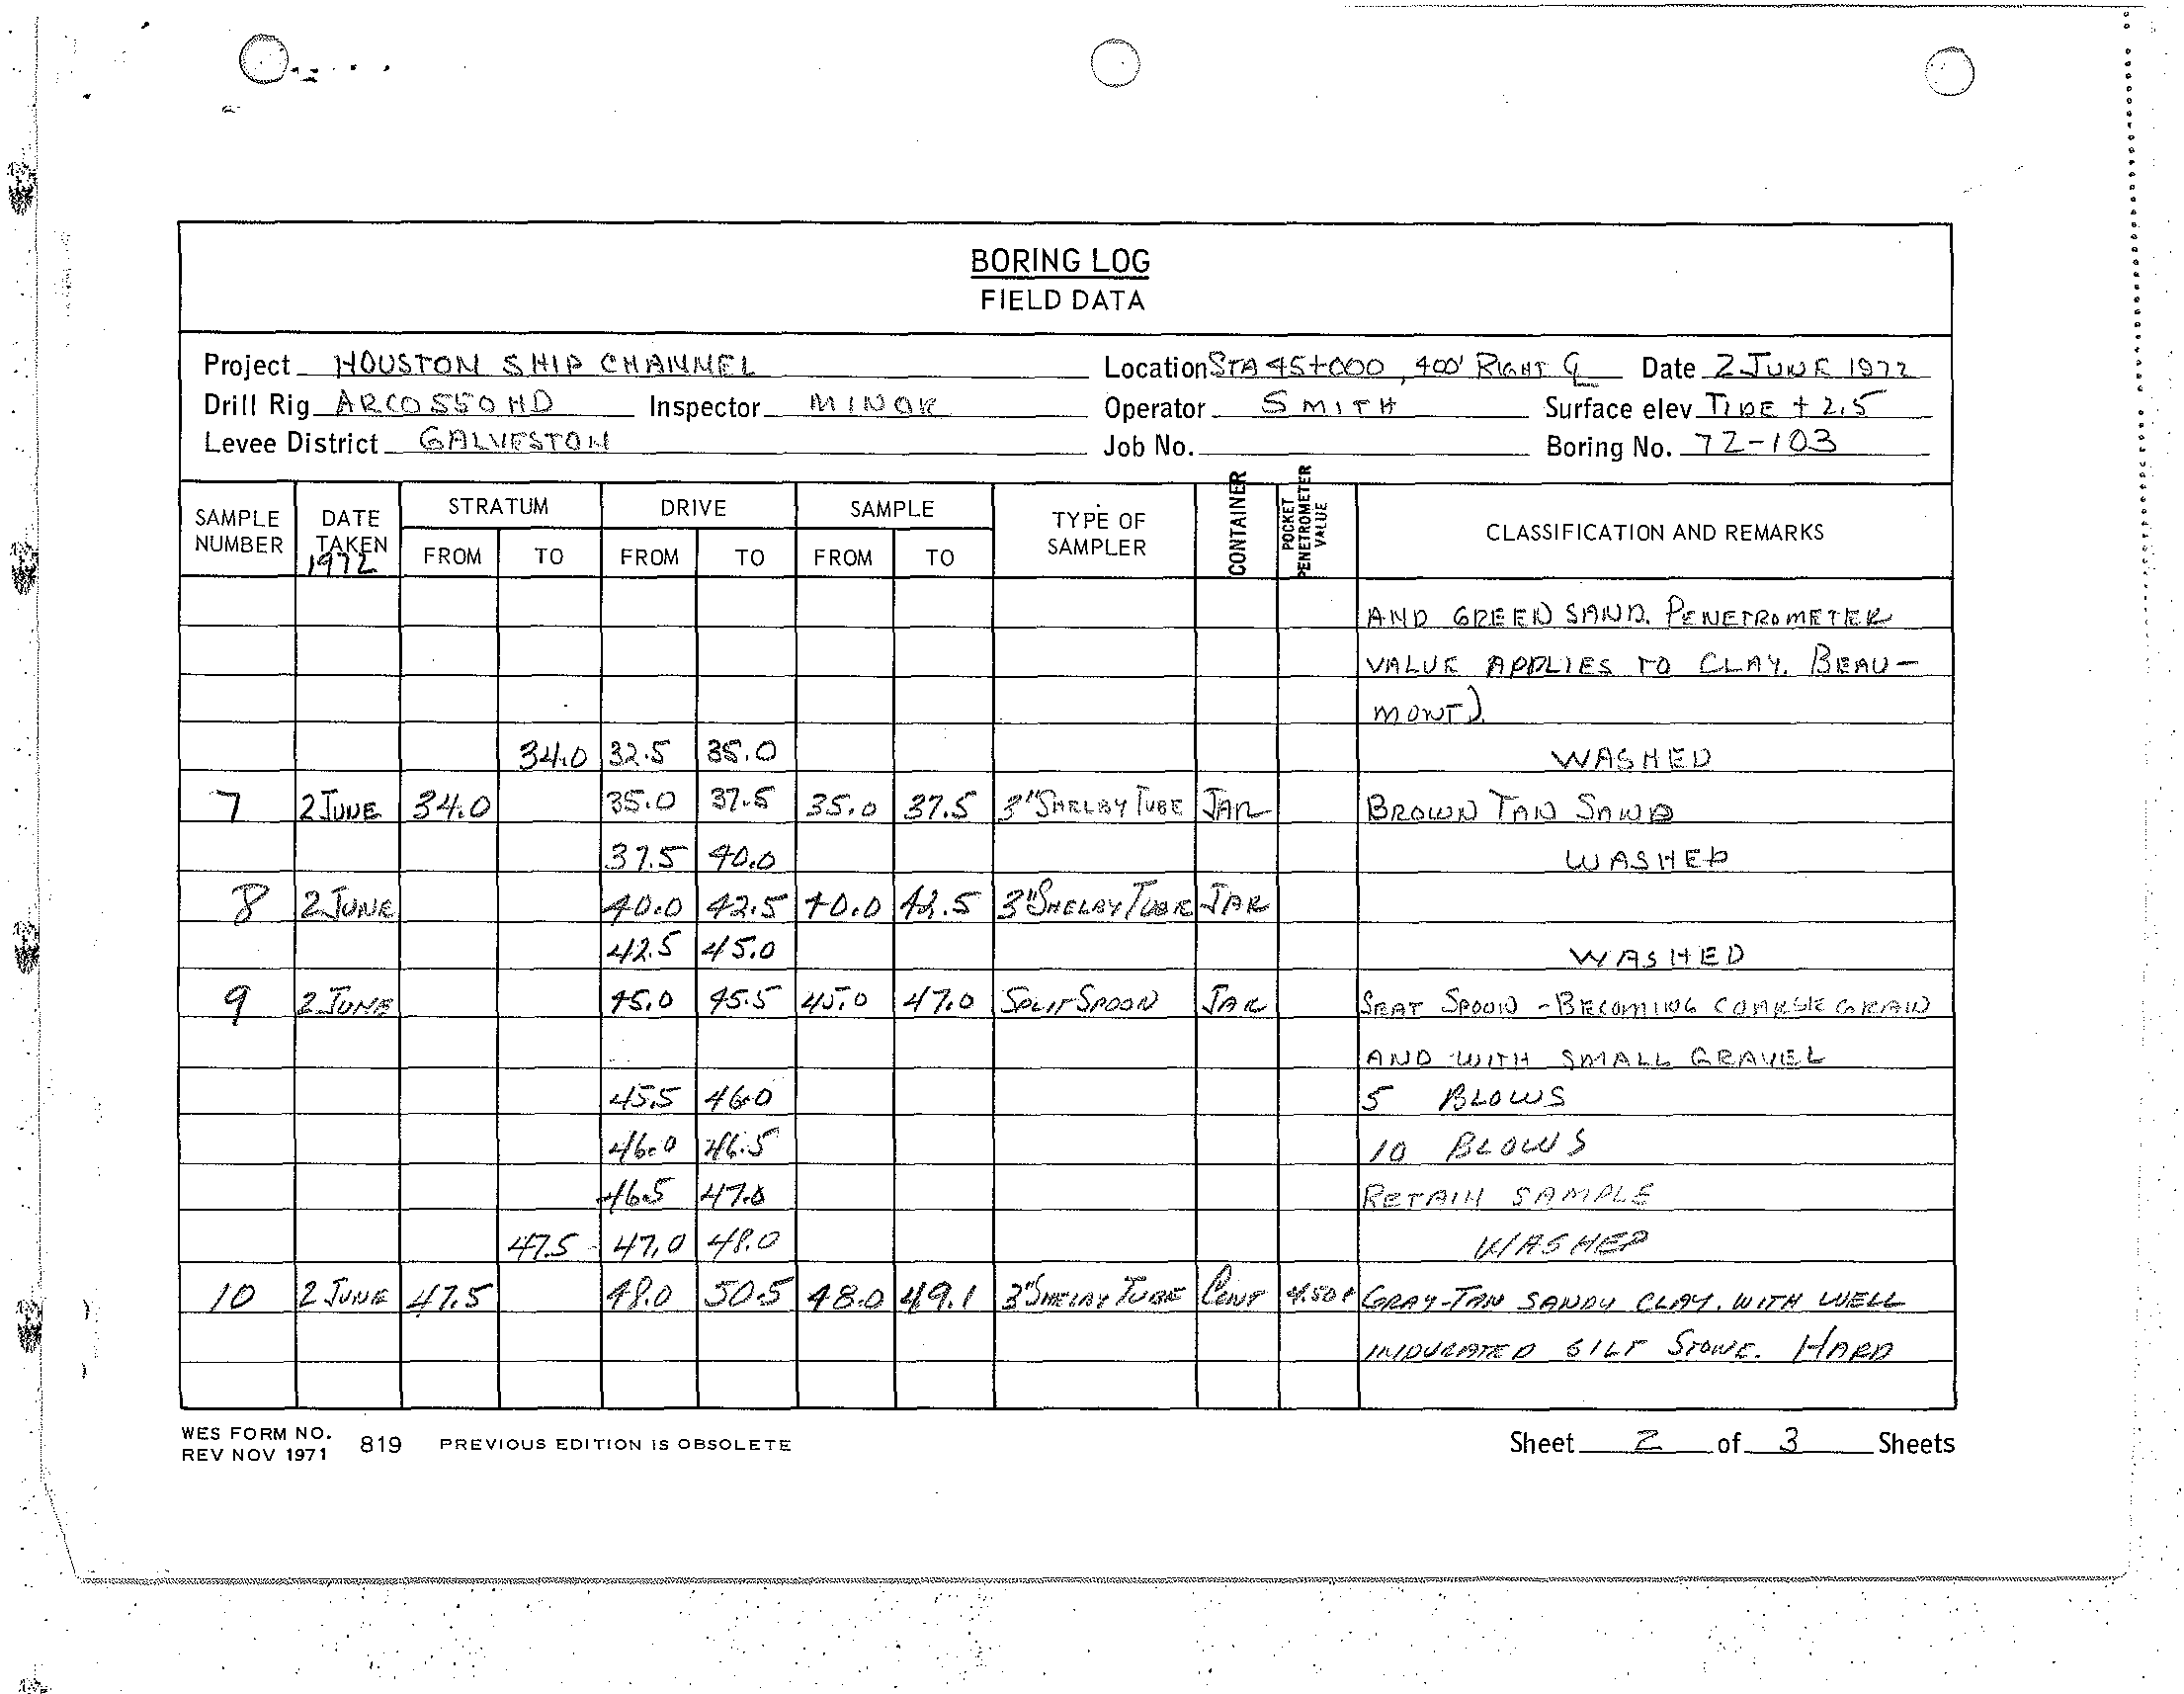 BORING LOG
FIELD DATA
Project HOUSTON SHIP CHANNEL Location STA 45+000, 400' RIGHT ℄ Date 2 JUNE 1972
Drill Rig ARCO 550 HD Inspector MINOR Operator SMITH Surface elev TIDE +2.5
Levee District GALVESTON Job No. Boring No. 72-103
SAMPLE NUMBER DATE TAKEN 1972 STRATUM FROM TO DRIVE FROM TO SAMPLE FROM TO TYPE OF SAMPLER CONTAINER POCKET PENETROMETER VALUE CLASSIFICATION AND REMARKS
AND GREEN SAND. PENETROMETER
VALUE APPLIES TO CLAY. BEAU-
MONT)
34.0 32.5 35.0 WASHED
7 2 JUNE 34.0 35.0 37.5 35.0 37.5 3" SHELBY TUBE JAR BROWN TAN SAND
37.5 40.0 WASHED
8 2 JUNE 40.0 42.5 40.0 42.5 3" SHELBY TUBE JAR
42.5 45.0 WASHED
9 2 JUNE 45.0 45.5 45.0 47.0 SPLIT SPOON JAR SEAT SPOON - BECOMING COARSE GRAIN
AND WITH SMALL GRAVEL
45.5 46.0 5 BLOWS
46.0 46.5 10 BLOWS
46.5 47.0 RETAIN SAMPLE
47.5 47.0 48.0 WASHED
10 2 JUNE 47.5 48.0 50.5 48.0 49.1 3" SHELBY TUBE CONT 4.50+ GRAY-TAN SANDY CLAY. WITH WELL
INDURATED SILT STONE. HARD
WES FORM NO. 819 PREVIOUS EDITION IS OBSOLETE Sheet 2 of 3 Sheets
REV NOV 1971